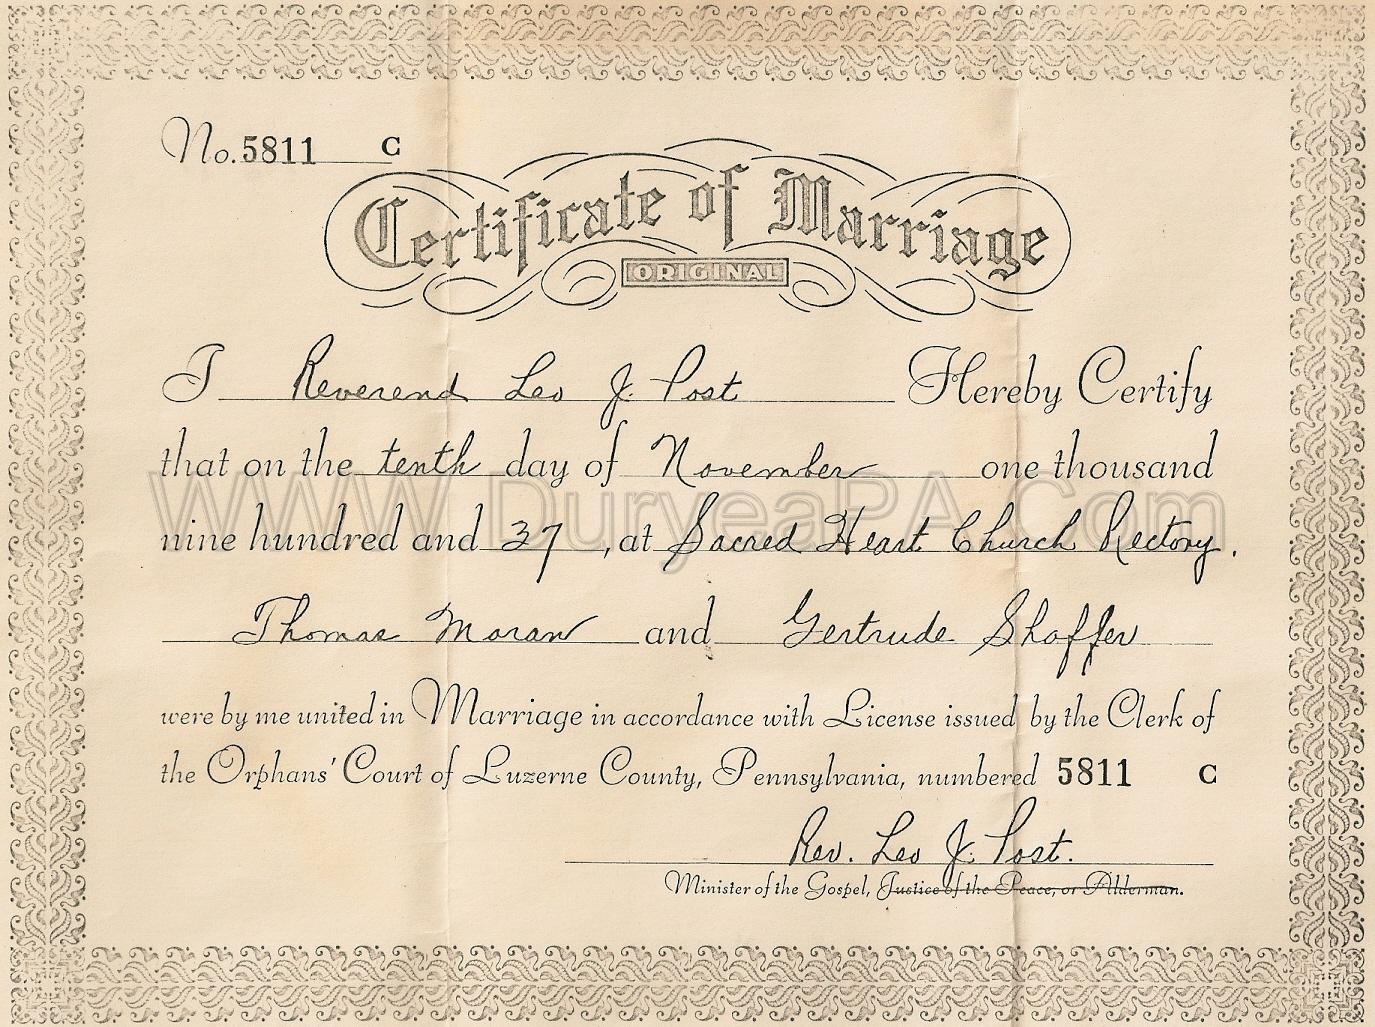 No. 5811 C
Certificate of Marriage
ORIGINAL
I Reverend Leo J. Post Hereby Certify
that on the tenth day of November one thousand
www.DuryeaPA.Com
nine hundred and 37, at Sacred Heart Church Rectory.
Thomas Moran and Gertrude Shaffer
were by me united in Marriage in accordance with License issued by the Clerk of
the Orphans' Court of Luzerne County, Pennsylvania, numbered 5811 C
Rev. Leo J. Post.
Minister of the Gospel, Justice of the Peace, or Alderman.